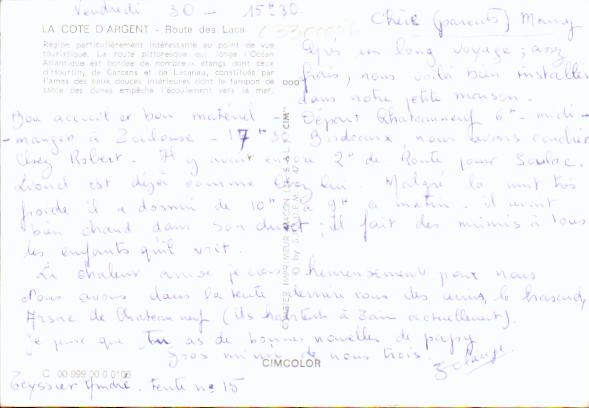 Vendredi 30 - 15h30.
Chère (parents) Mamy
LA COTE D'ARGENT - Route des Lacs
Région particulièrement intéressante au point de vue
touristique. La route pittoresque qui longe l'Océan
Atlantique est bordée de nombreux étangs dont ceux
d'Hourtin, de Carcans et de Lacanau, constitués par
l'amas des eaux douces intérieures dont le tampon de
sable des dunes empêche l'écoulement vers la mer.
Après un long voyage, assez
frais, nous voilà bien installés
dans notre petite maison.
Bon accueil et bon matériel - Départ Chateauneuf 6h - midi -
manger à Toulouse - 17h30 Bordeaux, nous avions couché
chez Robert. Il y avait encore 2h de Route pour Soulac.
Lionel est déjà comme chez lui. Malgré la nuit très
froide il a dormi de 10h à 9h matin. il avait
bien chaud dans son duvet; il fait des mimis à tous
les enfants qu'il voit.
La chaleur arrive je crois heureusement pour nous
Nous avons dans la tente derrière nous des amis,
de Chateauneuf (ils habitent à actuellement).
je pense que tu as de bonnes nouvelles de papy
Gros mimis de nous trois
Solange
CIMCOLOR
C 00 999 00 0 0106
Teyssier André. Tente no 15
COMBIER IMPRIMEUR MACON (S.-&-L.) "CIM"